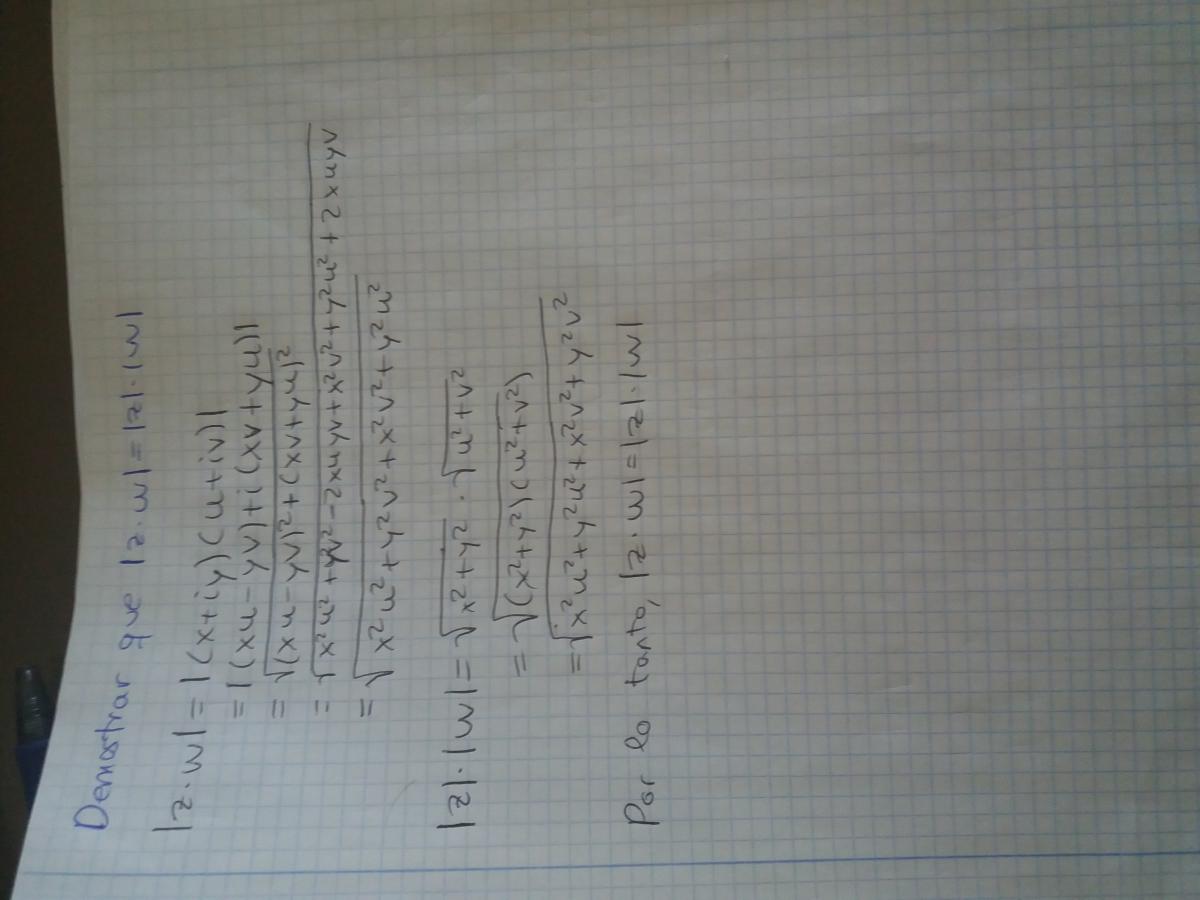 Demostrar que |z·w|=|z|·|w|
|z·w|=|(x+iy)(u+iv)|
=|(xu-yv)+i(xv+yu)|
=√(xu-yv)²+(xv+yu)²
=√x²u²+y²v²-2xuyv+x²v²+y²u²+2xuyv
=√x²u²+y²v²+x²v²+y²u²
|z|·|w|=√x²+y² · √u²+v²
=√(x²+y²)(u²+v²)
=√x²u²+y²u²+x²v²+y²v²
Por lo tanto, |z·w|=|z|·|w|